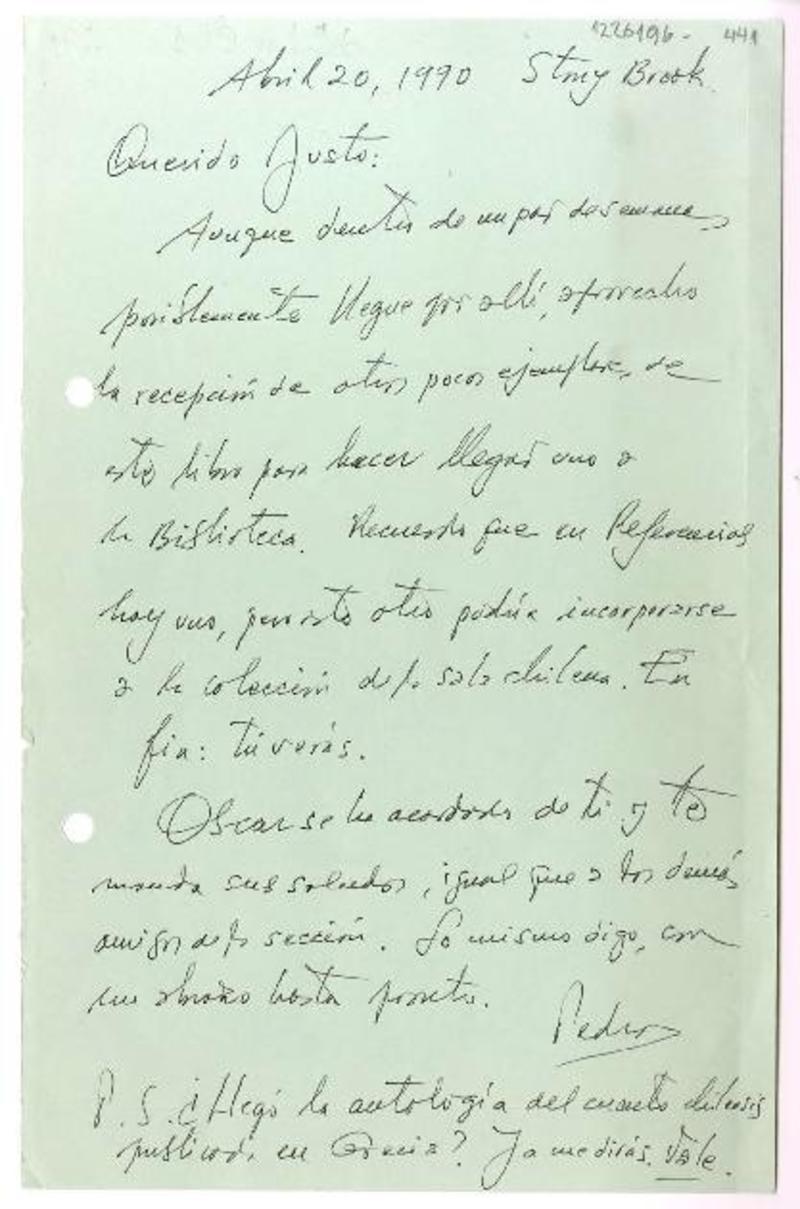 226196 - 441
Abril 20, 1990 Stony Brook.
Querido Justo:
Aunque dentro de un par de semanas
posiblemente llegue por allí, aprovecho
la recepción de otros pocos ejemplares de
este libro para hacer llegar uno a
la Biblioteca. Recuerdo que en Referencias
hay uno, pero este otro podría incorporarse
a la colección de la sala chilena. En
fin: tú verás.
Oscar se ha acordado de ti y te
manda sus saludos, igual que a los demás
amigos de la sección. Lo mismo digo, con
un abrazo hasta pronto.
Pedro
P.S. ¿Llegó la antología del cuento chileno
publicada en Grecia? Ya me dirás. Vale.